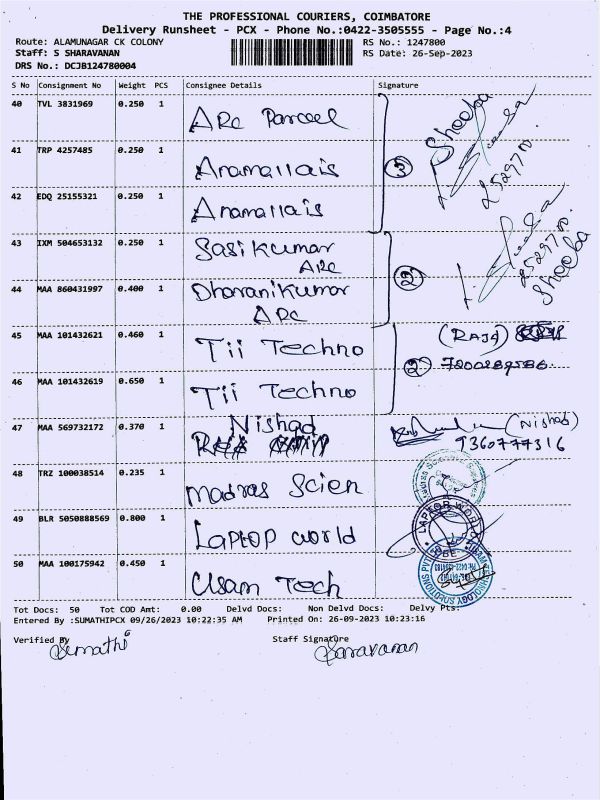 THE PROFESSIONAL COURIERS, COIMBATORE
Delivery Runsheet - PCX - Phone No.:0422-3505555 - Page No.:4
Route: ALAMUNAGAR CK COLONY
RS No.: 1247800
Staff: S SHARAVANAN
RS Date: 26-Sep-2023
DRS No.: DCJB124780004
S No Consignment No Weight PCS Consignee Details Signature
40 TVL 3831969 0.250 1 ARC Parcel
Sheeba
41 TRP 4257485 0.250 1 Anamallais
3
42 EDQ 25155321 0.250 1 Anamallais
43 IXM 504653132 0.250 1 Sasikumar
ARC
2
Sheeba
44 MAA 860431997 0.400 1 Dharanikumar
ARC
45 MAA 101432621 0.460 1 Tii Techno
(RAJA)
2
46 MAA 101432619 0.650 1 Tii Techno
47 MAA 569732172 0.370 1 Nishad
(Nishad)
9360777316
48 TRZ 100038514 0.235 1 Madras Scien
49 BLR 5050888569 0.800 1 Laptop world
LAPTOP WORLD
50 MAA 100175942 0.450 1 Usam Tech
Tot Docs: 50 Tot COD Amt: 0.00 Delvd Docs: Non Delvd Docs: Delvy Pts:
Entered By :SUMATHIPCX 09/26/2023 10:22:35 AM Printed On: 26-09-2023 10:23:16
Verified By
Sumathi
Staff Signature
Saravanan